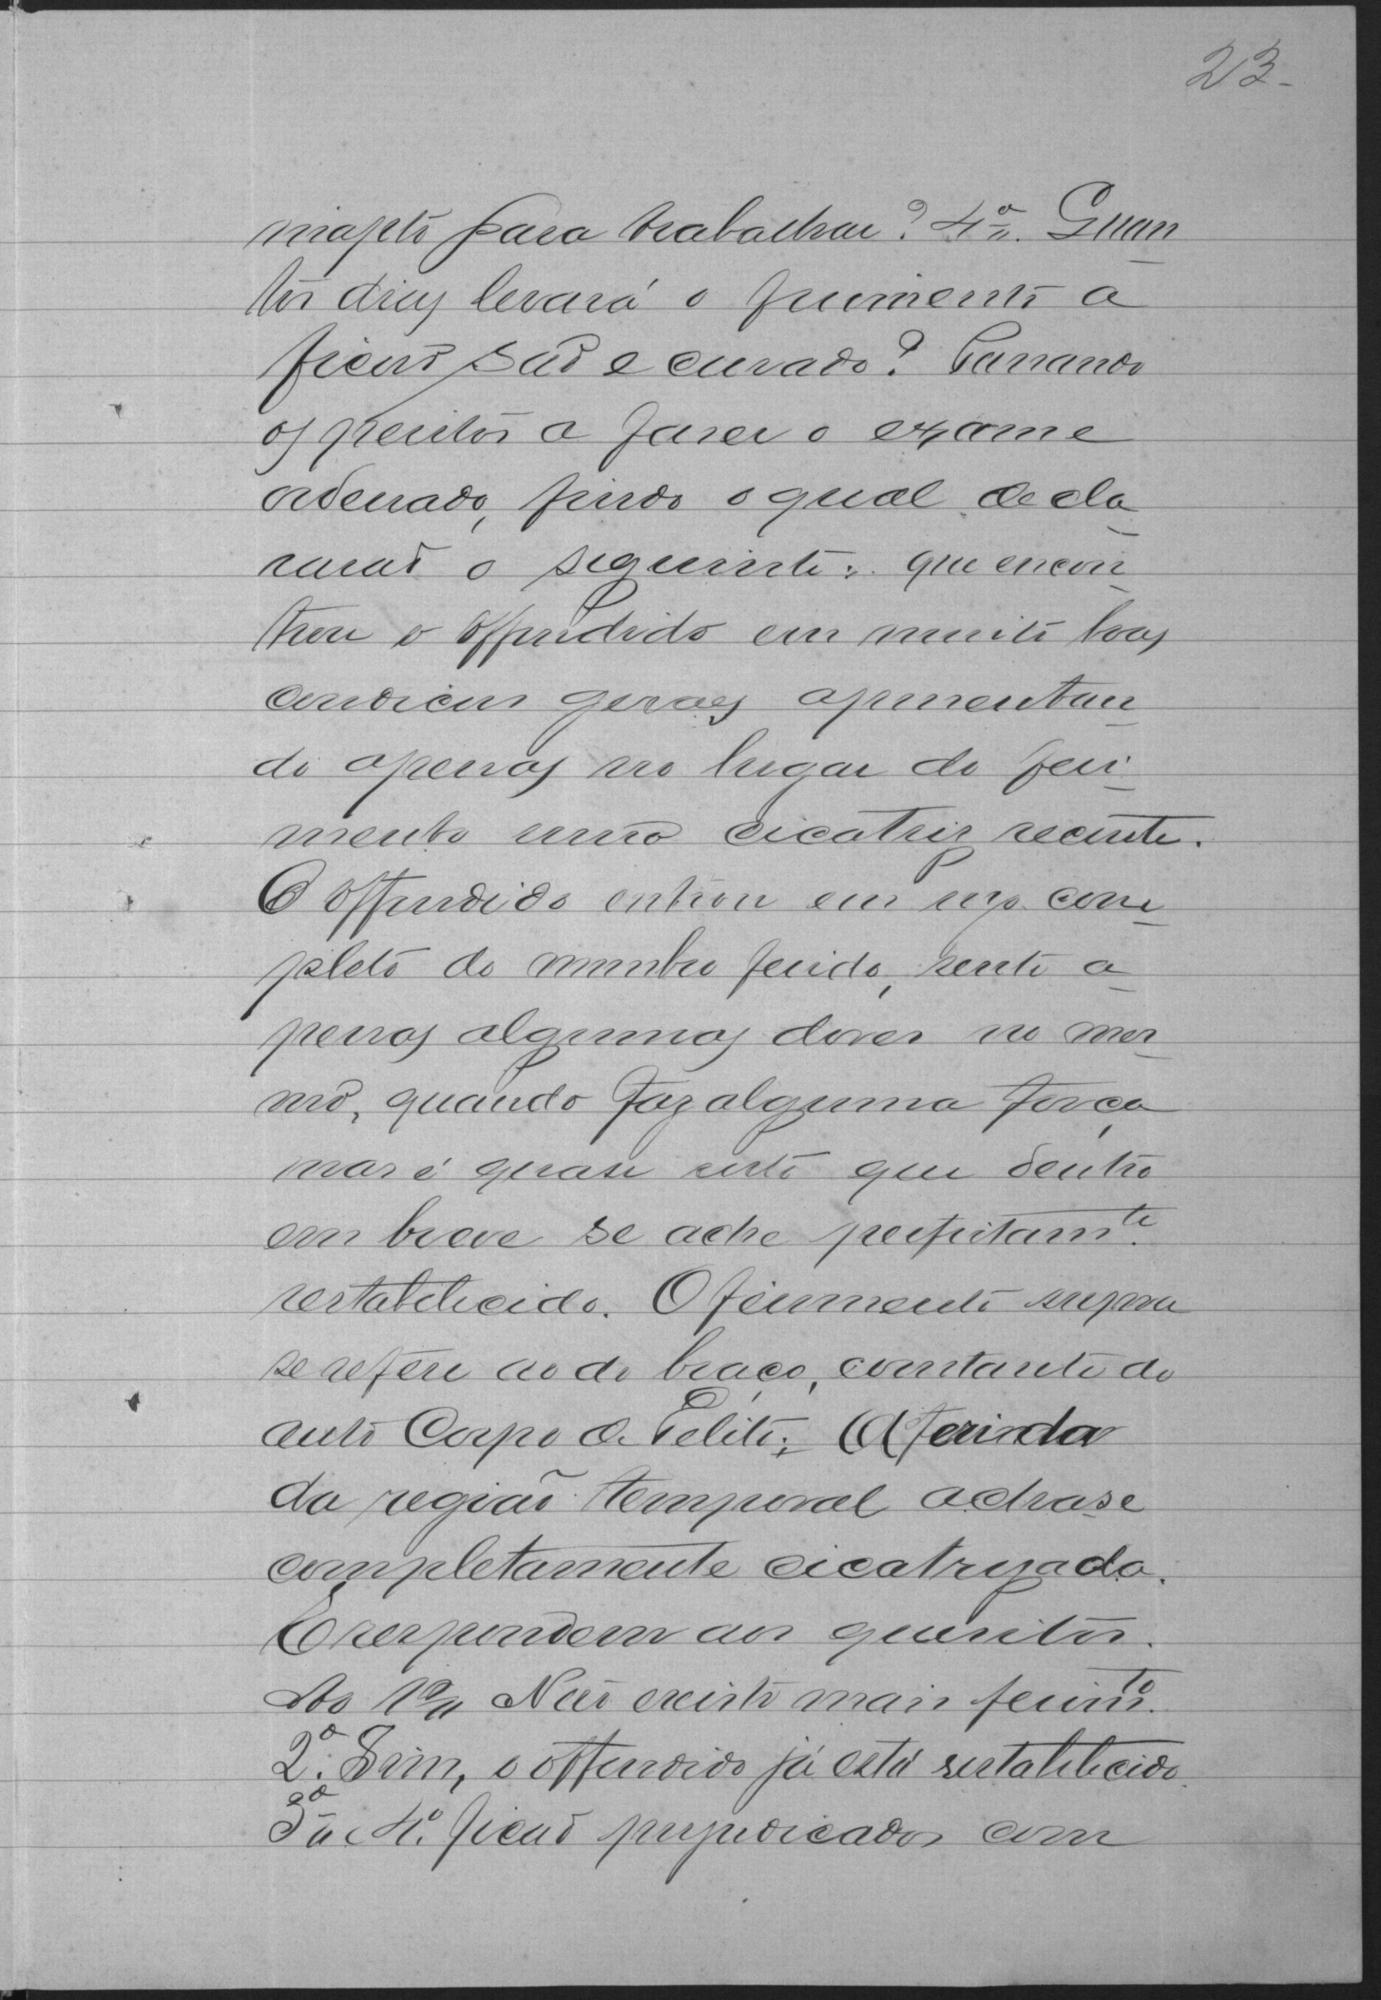 23-
inapto para trabalhar? 4º. Quan
tos dias levará o ferimento a
ficar são e curado? Passando
os peritos a fazer o exame
ordenado, findo o qual decla
rarão o seguinte: que encon
trou o offendido em muito boas
condicões geraes apresentan
do apenas no lugar do feri
mento uma cicatriz recente.
O offendido entrou em uso com
pleto do membro ferido, sente a
penas algumas dores no mes
mo, quando faz alguma força
mas é quase certo que dentro
em breve se ache perfeitamte.
restabelecido. O ferimento supra
se refere ao do braço, constante do
auto Corpo de Delito; A ferida
da região temporal acha-se
completamente cicatrizada.
E respondem aos quesitos.
Ao 1º Não existe mais ferimto.
2º. Sim, o offendido já está restabelecido.
3º 4º. ficão prejudicados com